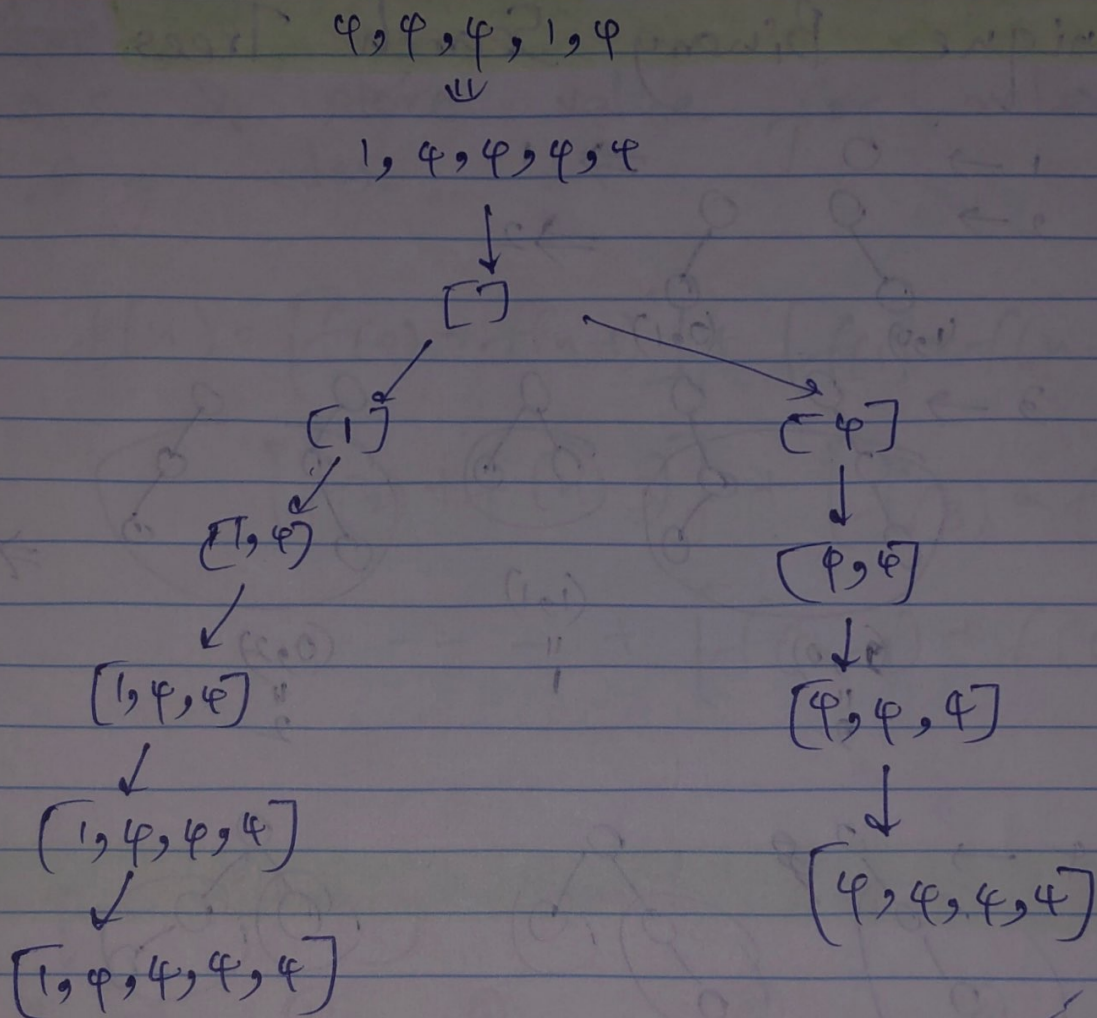 4, 4, 4, 1, 4
⇓
1, 4, 4, 4, 4
[ ]
[1] [4]
[1, 4] [4, 4]
[1, 4, 4] [4, 4, 4]
[1, 4, 4, 4] [4, 4, 4, 4]
[1, 4, 4, 4, 4]